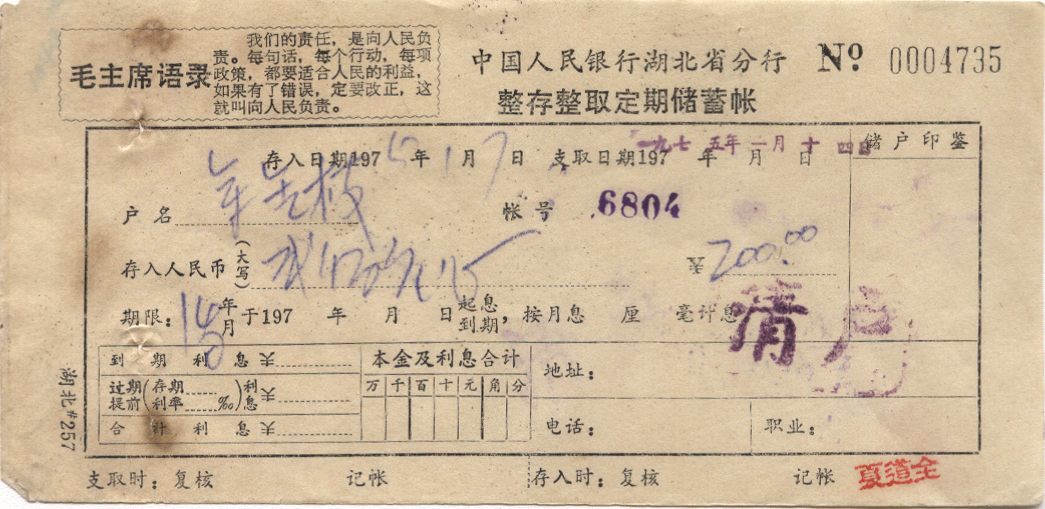 毛主席语录
我们的责任，是向人民负
责。每句话，每个行动，每项
政策，都要适合人民的利益，
如果有了错误，定要改正，这
就叫向人民负责。
中国人民银行湖北省分行 № 0004735
整存整取定期储蓄帐
存入日期197 年1月7日 支取日期197 年 月 日 一九七五年一月十四日 储户印鉴
户名 帐号 6804
存入人民币（大写） ¥200.00
期限： 年月于197 年 月 日起息到期，按月息 厘 毫计息
清户
到期利息¥
过期提前（存期 利率 ‰）利息¥
合计利息¥
本金及利息合计
万千百十元角分
地址：
电话： 职业：
湖北#257
支取时：复核 记帐 存入时：复核 记帐 夏道全